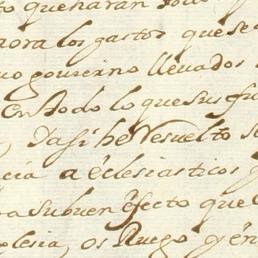 que haran
hora los gastos que se
gouierno lleuados
En todo lo que sus fu
Y asi he Resuelto
cia a eclesiasticos y
su buen efecto que
glesia, os Ruego y en